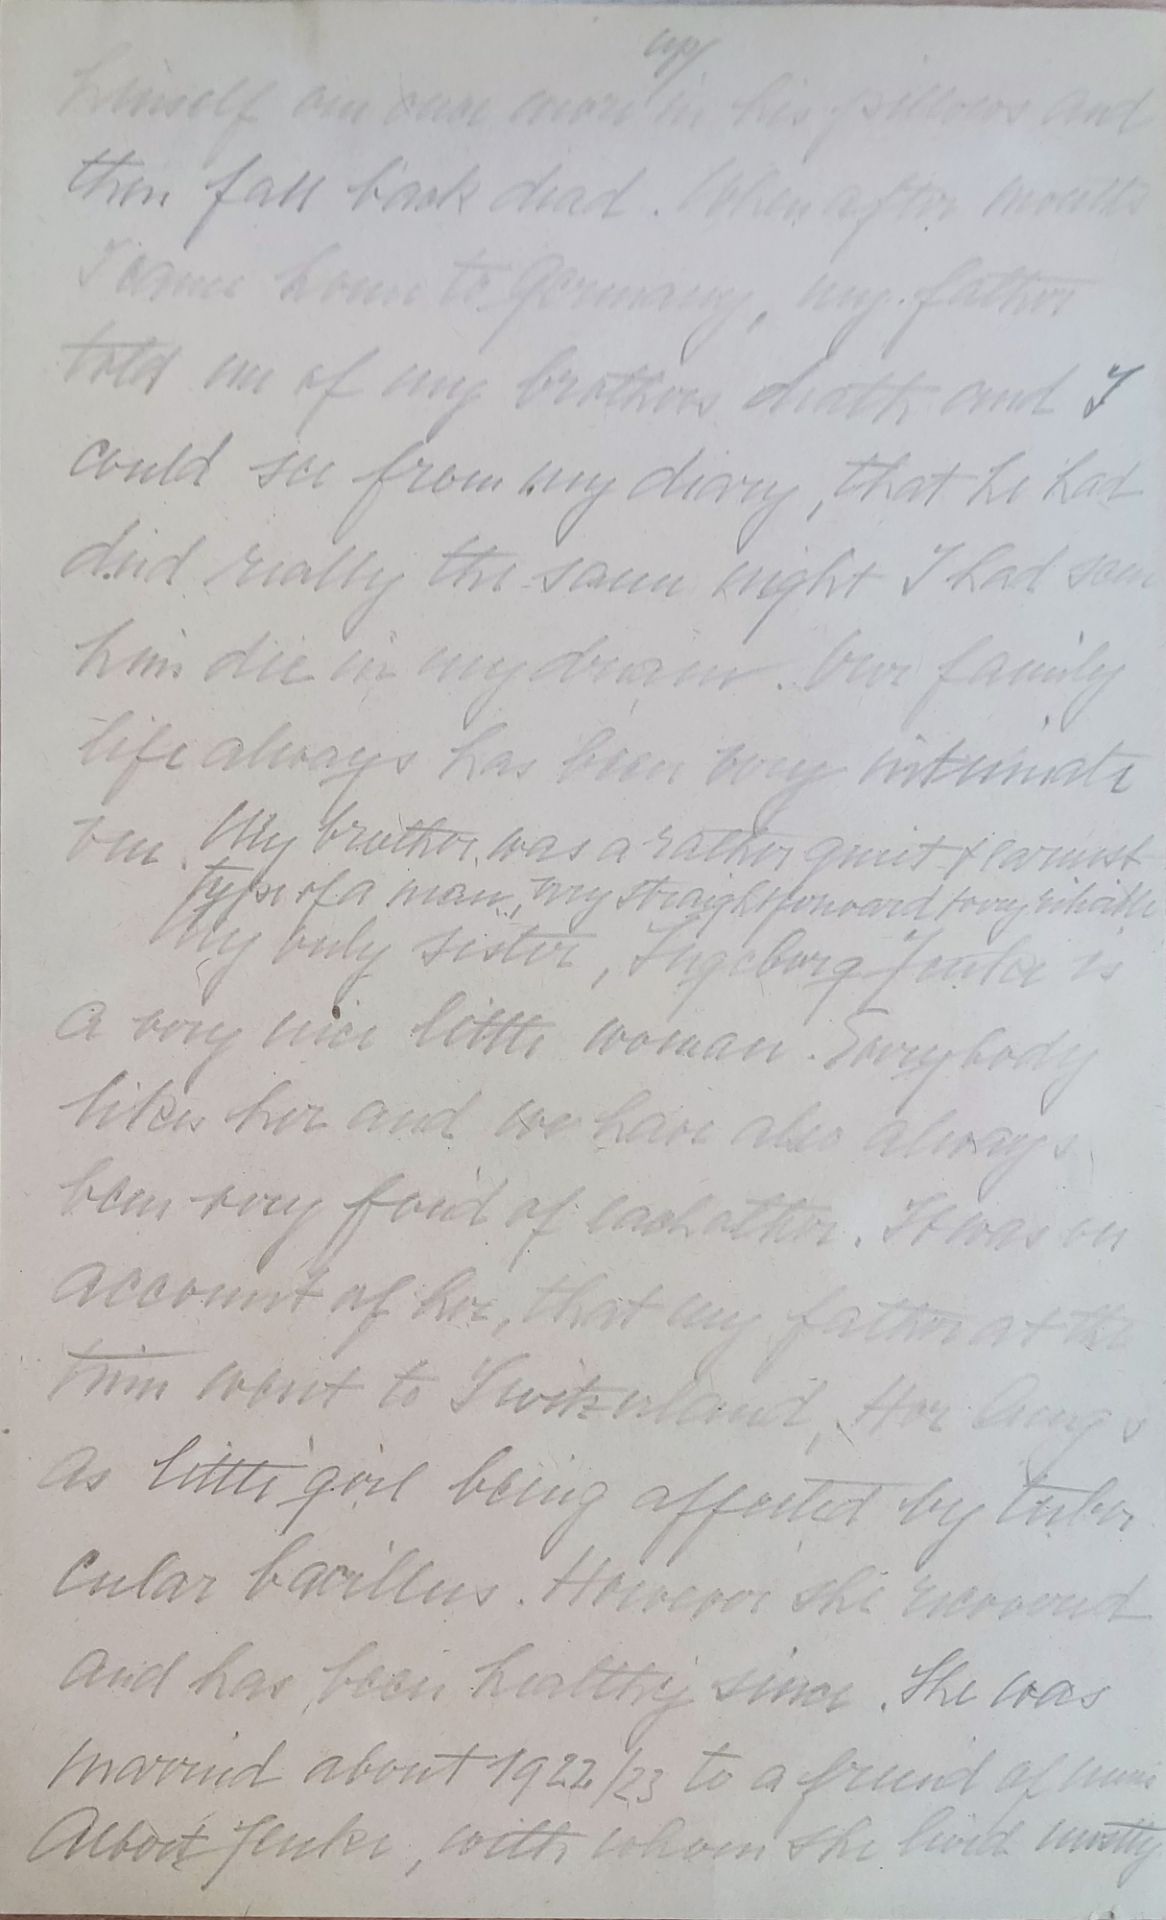 up
himself once more in his pillows and
then fall back dead. When after months
I came home to Germany, my father
told me of my brothers death and I
could see from my diary, that he had
died really the same night I had seen
him die in my dream. Our family
life always has been very intimate
one. My brother was a rather quiet & earnest
type of a man, very straightforward & very reliable
My only sister, Ingeborg Jenke is
a very nice little woman. Everybody
likes her and we have also always
been very fond of eachother. It was on
account of her, that my father at the
time went to Switzerland, Her lungs
as little girl being affected by tuber
cular bacillus. However she recovered
and has been healthy since. She was
married about 1922/23 to a friend of mine
Albert Jenke, with whom she lived mostly